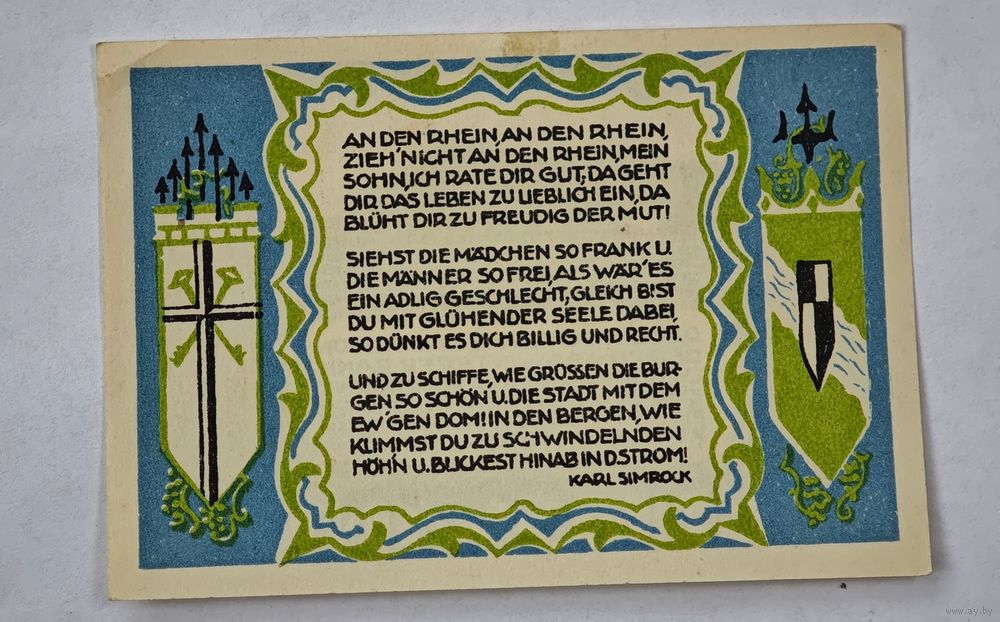 AN DEN RHEIN, AN DEN RHEIN,
ZIEH' NICHT AN DEN RHEIN, MEIN
SOHN, ICH RATE DIR GUT; DA GEHT
DIR DAS LEBEN ZU LIEBLICH EIN, DA
BLÜHT DIR ZU FREUDIG DER MUT!
SIEHST DIE MÄDCHEN SO FRANK U.
DIE MÄNNER SO FREI, ALS WÄR' ES
EIN ADLIG GESCHLECHT, GLEICH BIST
DU MIT GLÜHENDER SEELE DABEI,
SO DÜNKT ES DICH BILLIG UND RECHT.
UND ZU SCHIFFE, WIE GRÜSSEN DIE BUR-
GEN SO SCHÖN U. DIE STADT MIT DEM
EW'GEN DOM! IN DEN BERGEN, WIE
KLIMMST DU ZU SCHWINDELNDEN
HÖH'N U. BLICKEST HINAB IN D. STROM!
KARL SIMROCK
www.ay.by